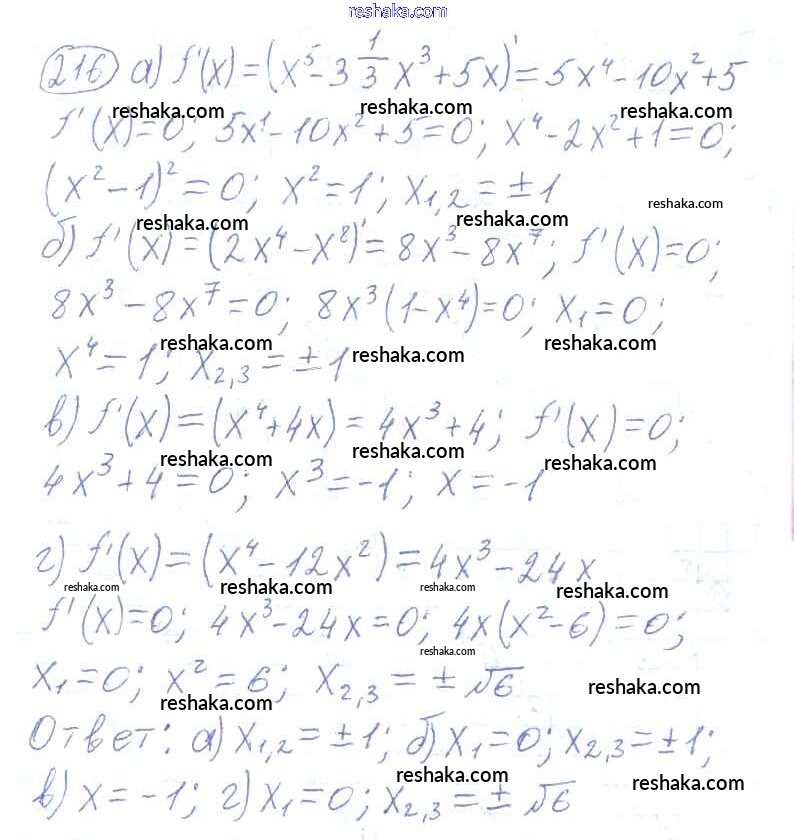 reshaka.com
216 а) f'(x) = (x⁵ - 3 1/3 x³ + 5x)' = 5x⁴ - 10x² + 5
reshaka.com reshaka.com reshaka.com
f'(x) = 0; 5x⁴ - 10x² + 5 = 0; x⁴ - 2x² + 1 = 0;
(x² - 1)² = 0; x² = 1; x₁,₂ = ± 1
reshaka.com reshaka.com reshaka.com
б) f'(x) = (2x⁴ - x⁸)' = 8x³ - 8x⁷; f'(x) = 0;
8x³ - 8x⁷ = 0; 8x³(1 - x⁴) = 0; x₁ = 0;
reshaka.com reshaka.com reshaka.com
x⁴ = 1; x₂,₃ = ± 1
в) f'(x) = (x⁴ + 4x) = 4x³ + 4; f'(x) = 0;
reshaka.com reshaka.com reshaka.com
4x³ + 4 = 0; x³ = -1; x = -1
г) f'(x) = (x⁴ - 12x²) = 4x³ - 24x
reshaka.com reshaka.com reshaka.com reshaka.com
f'(x) = 0; 4x³ - 24x = 0; 4x(x² - 6) = 0;
reshaka.com
x₁ = 0; x² = 6; x₂,₃ = ± √6
reshaka.com reshaka.com
Ответ: а) x₁,₂ = ± 1; б) x₁ = 0; x₂,₃ = ± 1;
reshaka.com reshaka.com
в) x = -1; г) x₁ = 0; x₂,₃ = ± √6